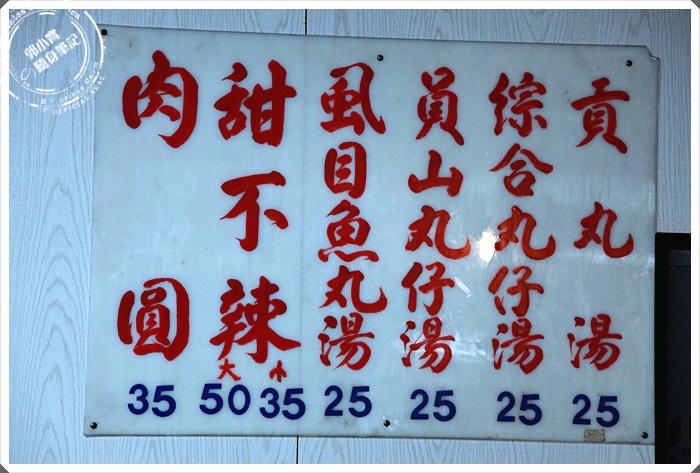 貢丸湯 25
綜合丸仔湯 25
員山丸仔湯 25
虱目魚丸湯 25
甜不辣 大 50 小 35
肉圓 35
郭小寶
隨身筆記
OFFICIAL SEAL